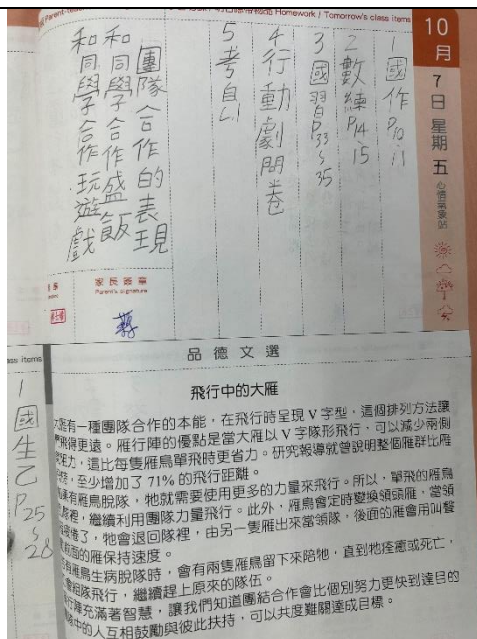 Homework / Tomorrow's class items
10
月
7
日
星
期
五
心情氣象站
1 國作 P10、11
2 數練 P14、15
3 國習 P33~35
4 行動劇問卷
5 考自
團隊合作的表現
和同學合作盛飯
和同學合作玩遊戲
家長簽章
Parent's signature
ass items
1 國生乙 P25~28
品德文選
飛行中的大雁
有一種團隊合作的本能,在飛行時呈現 V 字型,這個排列方法讓
飛得更遠。雁行陣的優點是當大雁以 V 字隊形飛行,可以減少兩側
阻力,這比每隻雁鳥單飛時更省力。研究報導就曾說明整個雁群比雁
,至少增加了 71% 的飛行距離。
有雁鳥脫隊,牠就需要使用更多的力量來飛行。所以,單飛的雁鳥
裡,繼續利用團隊力量飛行。此外,雁鳥會定時變換領頭雁,當領
疲倦了,牠會退回隊裡,由另一隻雁出來當領隊,後面的雁會用叫聲
前面的雁保持速度。
有雁鳥生病脫隊時,會有兩隻雁鳥留下來陪牠,直到牠痊癒或死亡,
組隊飛行,繼續趕上原來的隊伍。
充滿著智慧,讓我們知道團結合作會比個別努力更快到達目的
中的人互相鼓勵與彼此扶持,可以共度難關達成目標。